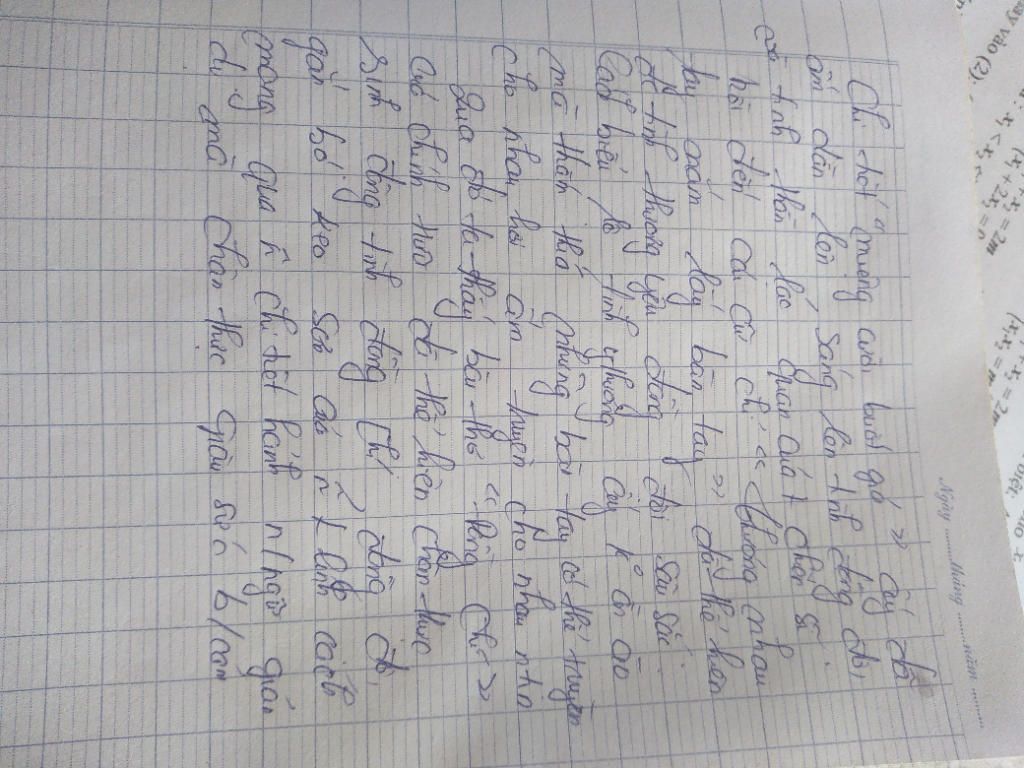 Ngày ......... tháng ......... năm .........
Chi tiết "miệng cười buốt giá" ấy đã
ấm dần lên, sáng lên tình đồng đội
và tinh thần lạc quan của chiến sĩ.
Nói đến cái cử chỉ "thương nhau
tay nắm lấy bàn tay" đã thể hiện
đc tình thương yêu đồng đội sâu sắc
Cách biểu lộ tình thương ấy k ồn ào
mà thấm thía những bàn tay có thể truyền
cho nhau hơi ấm truyền cho nhau
Qua đó ta thấy bài thơ "Đồng Chí"
của Chính Hữu đã thể hiện chân thực
sinh động tình đồng chí đồng đội
gắn bó keo sơn của lính cách
mạng qua n~ chi tiết hình ngữ giản
dị mà chân thực giàu sức
vào (2)
= 2m